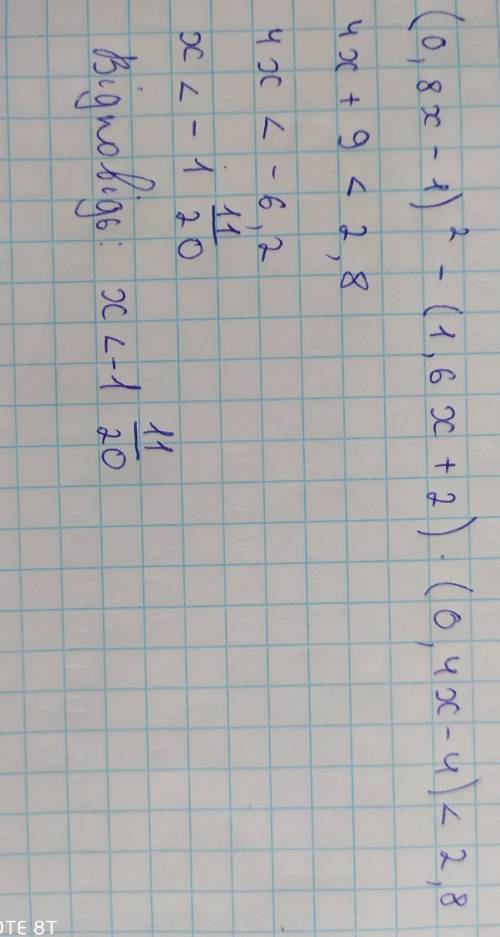 (0,8x - 1)² - (1,6x + 2) · (0,4x - 4) < 2,8
4x + 9 < 2,8
4x < - 6,2
x < - 1 11/20
Відповідь: x < -1 11/20
OTE 8T